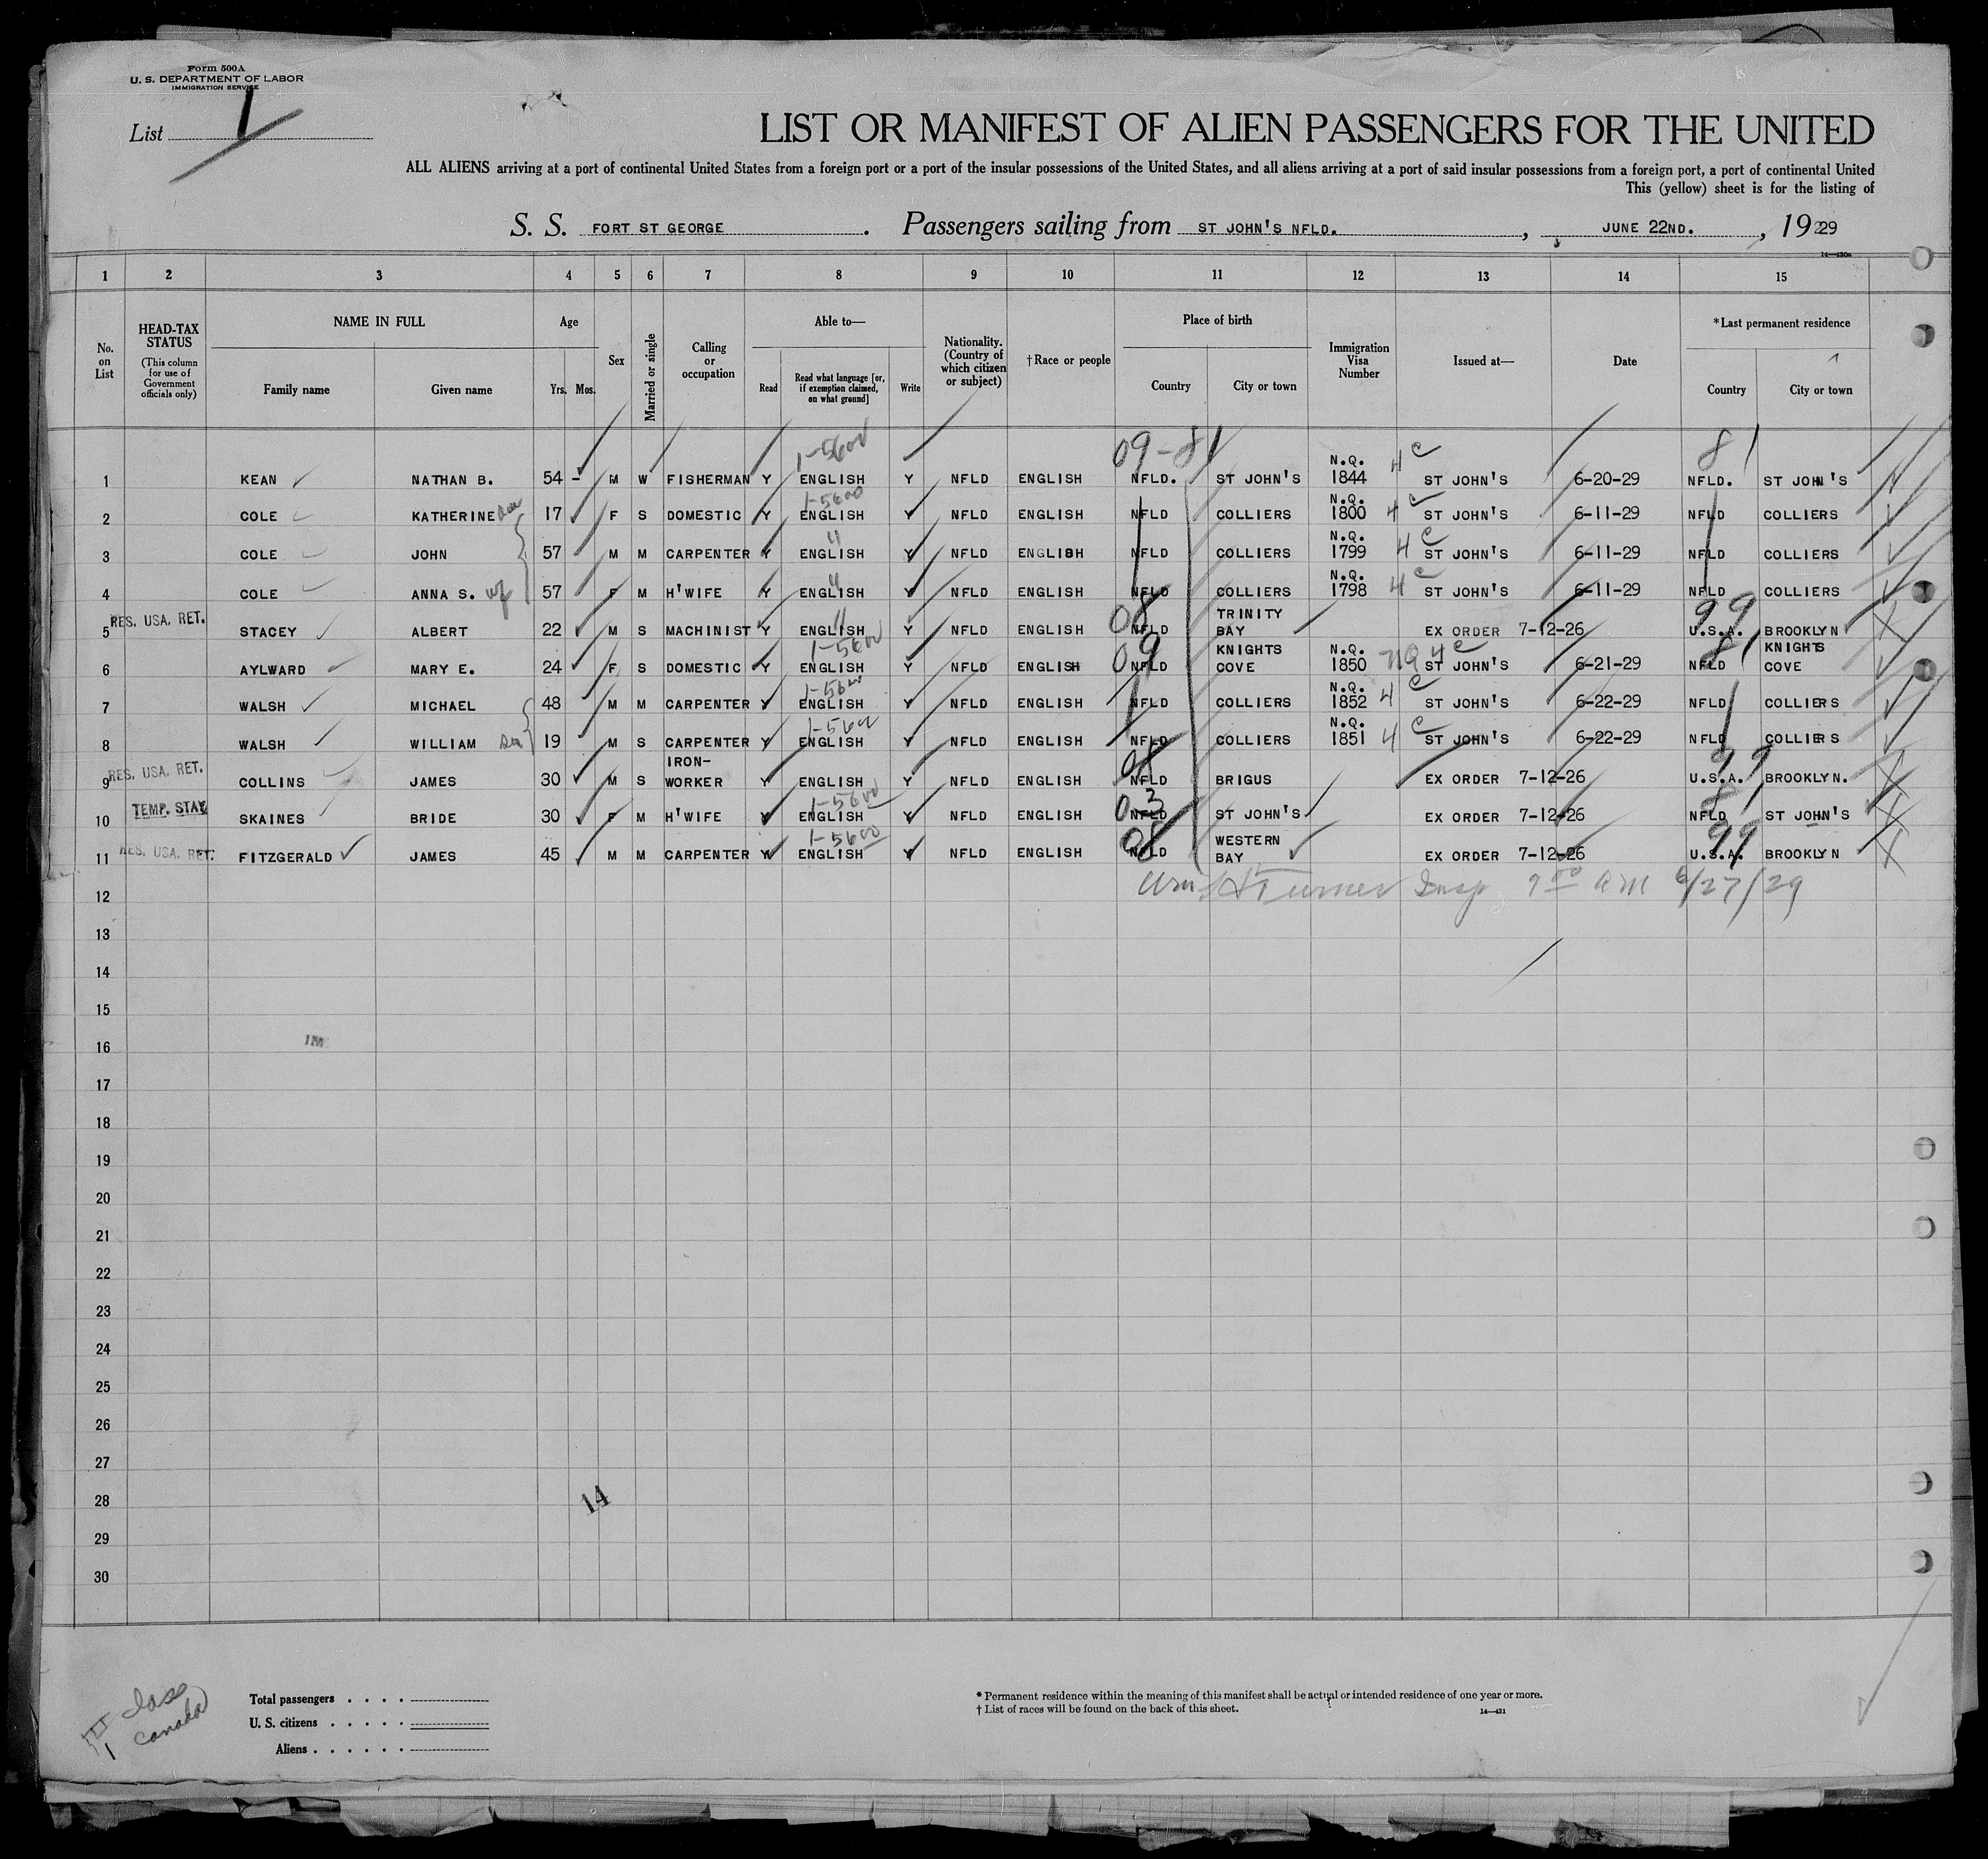 Form 500A
U. S. DEPARTMENT OF LABOR
IMMIGRATION SERVICE
List 1
LIST OR MANIFEST OF ALIEN PASSENGERS FOR THE UNITED
ALL ALIENS arriving at a port of continental United States from a foreign port or a port of the insular possessions of the United States, and all aliens arriving at a port of said insular possessions from a foreign port, a port of continental United
This (yellow) sheet is for the listing of
S. S. FORT ST GEORGE. Passengers sailing from ST JOHN'S NFLD., JUNE 22ND., 19229
14—430a
1 2 3 4 5 6 7 8 9 10 11 12 13 14 15
No. on List
HEAD-TAX STATUS
(This column for use of Government officials only)
NAME IN FULL
Family name Given name
Age
Yrs. Mos.
Sex
Married or single
Calling or occupation
Able to—
Read
Read what language [or, if exemption claimed, on what ground]
Write
Nationality. (Country of which citizen or subject)
†Race or people
Place of birth
Country City or town
Immigration Visa Number
Issued at—
Date
*Last permanent residence
Country City or town
1-5600 09-81 81
1 KEAN NATHAN B. 54 - M W FISHERMAN Y ENGLISH Y NFLD ENGLISH NFLD. ST JOHN'S N.Q. 1844 4 c ST JOHN'S 6-20-29 NFLD. ST JOHN'S
1-5600
2 COLE KATHERINE 17 F S DOMESTIC Y ENGLISH Y NFLD ENGLISH NFLD COLLIERS N.Q. 1800 4 c ST JOHN'S 6-11-29 NFLD COLLIERS
11
3 COLE JOHN 57 M M CARPENTER Y ENGLISH Y NFLD ENGLISH NFLD COLLIERS N.Q. 1799 4 c ST JOHN'S 6-11-29 NFLD COLLIERS
4 COLE ANNA S. wf 57 F M H'WIFE Y ENGLISH Y NFLD ENGLISH NFLD COLLIERS N.Q. 1798 4 c ST JOHN'S 6-11-29 NFLD COLLIERS
RES. USA. RET. 11 08 99
5 STACEY ALBERT 22 M S MACHINIST Y ENGLISH Y NFLD ENGLISH NFLD TRINITY BAY EX ORDER 7-12-26 U.S.A. BROOKLYN
1-5600 09 81
6 AYLWARD MARY E. 24 F S DOMESTIC Y ENGLISH Y NFLD ENGLISH NFLD KNIGHTS COVE N.Q. 1850 NQ 4 c ST JOHN'S 6-21-29 NFLD KNIGHTS COVE
1-5600
7 WALSH MICHAEL 48 M M CARPENTER Y ENGLISH Y NFLD ENGLISH NFLD COLLIERS N.Q. 1852 4 c ST JOHN'S 6-22-29 NFLD COLLIERS
1-5600
8 WALSH WILLIAM 19 M S CARPENTER Y ENGLISH Y NFLD ENGLISH NFLD COLLIERS N.Q. 1851 4 c ST JOHN'S 6-22-29 NFLD COLLIERS
RES. USA. RET. 99
9 COLLINS JAMES 30 M S IRON-WORKER Y ENGLISH Y NFLD ENGLISH NFLD BRIGUS EX ORDER 7-12-26 U.S.A. BROOKLYN.
TEMP. STAY 1-5600 03 81
10 SKAINES BRIDE 30 F M H'WIFE Y ENGLISH Y NFLD ENGLISH NFLD ST JOHN'S EX ORDER 7-12-26 NFLD ST JOHN'S
RES. USA. RET. 1-5600 08 99
11 FITZGERALD JAMES 45 M M CARPENTER Y ENGLISH Y NFLD ENGLISH NFLD WESTERN BAY EX ORDER 7-12-26 U.S.A. BROOKLYN
12 Turner Insp 9 00 AM 6/27/29
13
14
15
16
17
18
19
20
21
22
23
24
25
26
27
28 14
29
30
Canada
Total passengers . . . .
U. S. citizens . . . . .
Aliens . . . . . .
* Permanent residence within the meaning of this manifest shall be actual or intended residence of one year or more.
† List of races will be found on the back of this sheet.
14—431